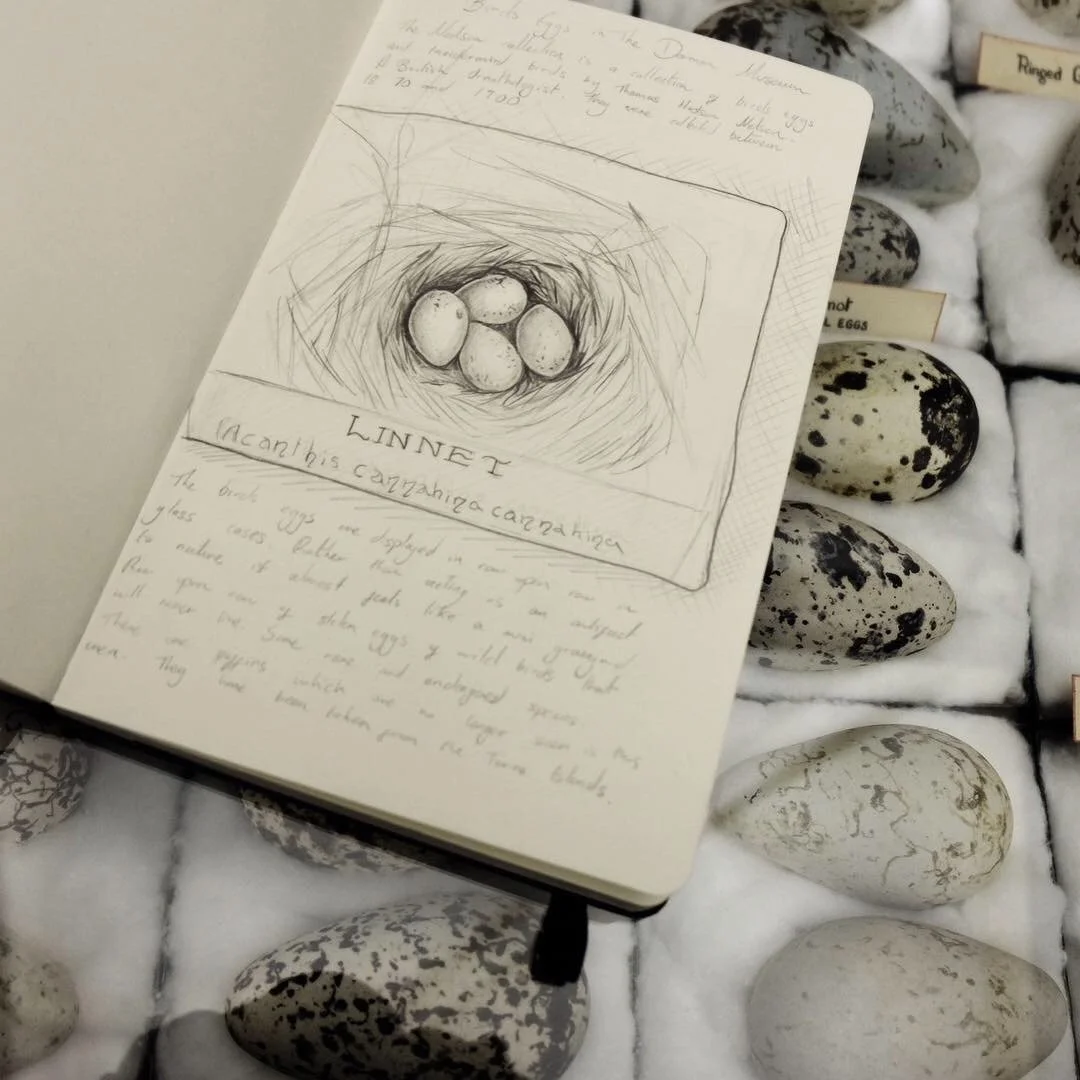 Birds Eggs in the Dorman Museum
The Nelson collection is a collection of birds eggs
and taxidermied birds by Thomas Hudson Nelson.
A British ornithologist. They were collected between
18 70 and 1700
LINNET
(Acanthis cannabina cannabina
The birds eggs are displayed in row upon row in
glass cases. Rather than acting as an antipod
to nature it almost feels like a mini graveyard
Row upon row of stolen eggs of wild birds that
will never live. Some rare and endangered species.
There are puffins which are no longer seen in this
area. They have been taken from the Farne Islands.
Ringed
not
L EGGS